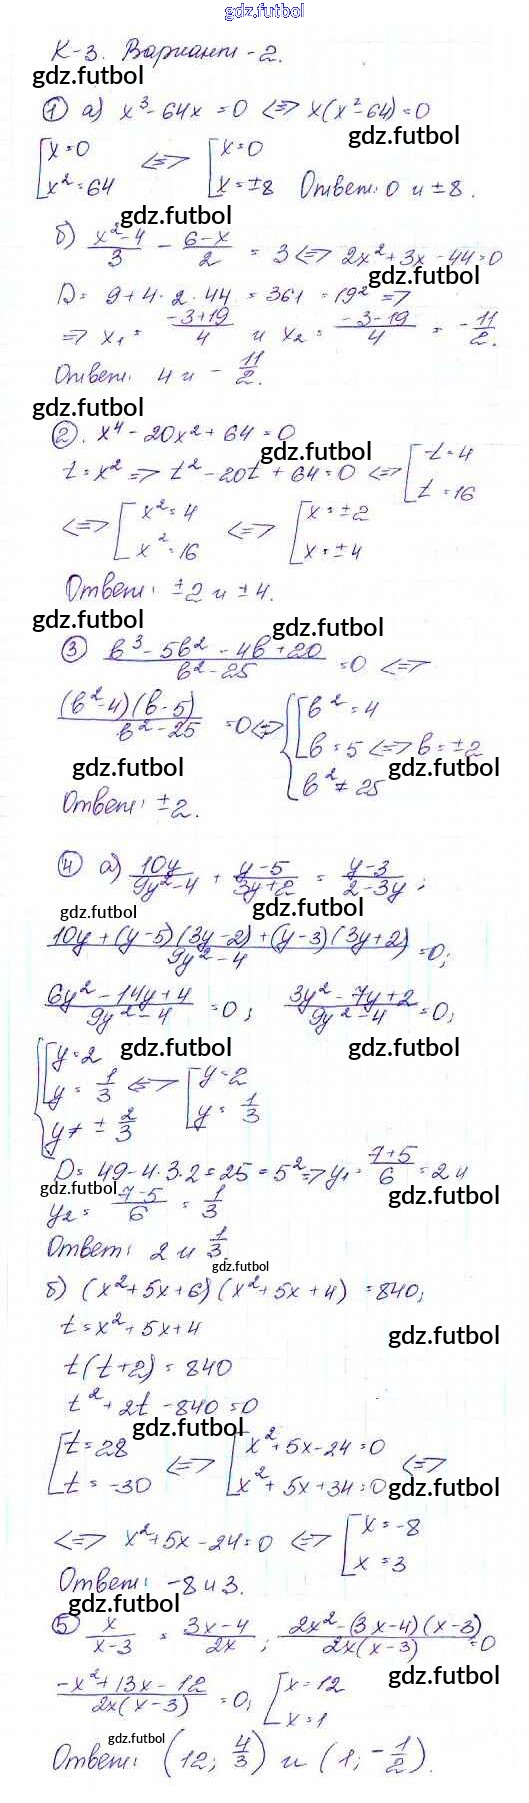 gdz.futbol
К-3. Вариант-2.
gdz.futbol
① а) x³ - 64x = 0 <=> x(x² - 64) = 0
gdz.futbol
[x = 0 <=> [x = 0
x² = 64 x = ±8 Ответ: 0 и ±8.
gdz.futbol
б) (x² - 4)/3 - (6 - x)/2 = 3 <=> 2x² + 3x - 44 = 0
gdz.futbol
D = 9 + 4 · 2 · 44 = 361 = 19² =>
=> x₁ = (-3+19)/4 и x₂ = (-3-19)/4 = -11/2.
Ответ: 4 и -11/2.
gdz.futbol
②. x⁴ - 20x² + 64 = 0
gdz.futbol
t = x² => t² - 20t + 64 = 0 <=> [t = 4
t = 16
<=> [x² = 4 <=> [x = ±2
x² = 16 x = ±4
Ответ: ±2 и ±4.
gdz.futbol gdz.futbol
③ (b³ - 5b² - 4b + 20)/(b² - 25) = 0 <=>
((b² - 4)(b - 5))/(b² - 25) = 0 <=> {[b² = 4
b = 5 <=> b = ±2
gdz.futbol gdz.futbol
b² ≠ 25
Ответ: ±2.
④ а) 10y/(9y² - 4) + (y - 5)/(3y + 2) = (y - 3)/(2 - 3y);
gdz.futbol gdz.futbol
(10y + (y - 5)(3y - 2) + (y - 3)(3y + 2))/(9y² - 4) = 0;
(6y² - 14y + 4)/(9y² - 4) = 0; (3y² - 7y + 2)/(9y² - 4) = 0;
gdz.futbol gdz.futbol
{[y = 2 <=> [y = 2
y = 1/3 y = 1/3
y ≠ ±2/3
D = 49 - 4 · 3 · 2 = 25 = 5² => y₁ = (7+5)/6 = 2 и
gdz.futbol gdz.futbol
y₂ = (7-5)/6 = 1/3
Ответ: 2 и 1/3.
gdz.futbol
б) (x² + 5x + 6)(x² + 5x + 4) = 840;
t = x² + 5x + 4
gdz.futbol
t(t + 2) = 840
t² + 2t - 840 = 0
gdz.futbol
[t = 28 <=> [x² + 5x - 24 = 0 <=>
t = -30 x² + 5x + 34 = 0
gdz.futbol
<=> x² + 5x - 24 = 0 <=> [x = -8
x = 3
Ответ: -8 и 3.
gdz.futbol
⑤ x/(x - 3) = (3x - 4)/2x; (2x² - (3x - 4)(x - 3))/(2x(x - 3)) = 0
gdz.futbol
(-x² + 13x - 12)/(2x(x - 3)) = 0; [x = 12
x = 1
gdz.futbol
Ответ: (12; 4/3) и (1; -1/2).